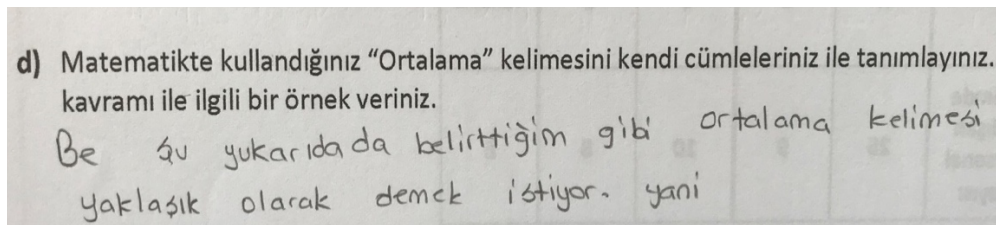 d) Matematikte kullandığınız “Ortalama” kelimesini kendi cümleleriniz ile tanımlayınız.
kavramı ile ilgili bir örnek veriniz.
Be şu yukarıda da belirttiğim gibi ortalama kelimesi
yaklaşık olarak demek istiyor. yani